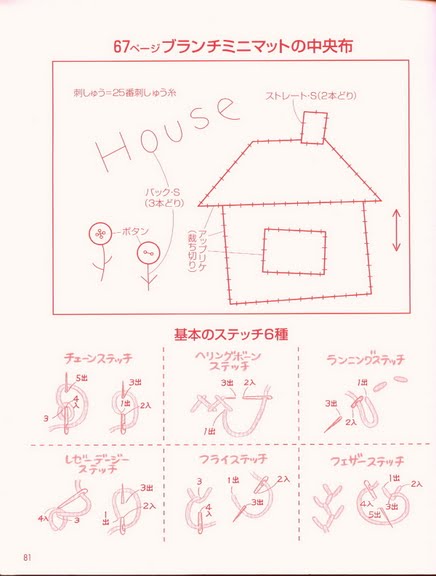 67ページブランチミニマットの中央布
刺しゅう=25番刺しゅう糸
ストレート・S(2本どり)
House
バック・S
(3本どり)
ボタン
アップリケ
(裁ち切り)
基本のステッチ6種
チェーンステッチ
5出
4入
3
3出
1出
2入
ヘリングボーン
ステッチ
3出
2入
1出
ランニングステッチ
1出
3出
2入
レゼーデージー
ステッチ
4入
3
3出
1出
2入
フライステッチ
3
4入
1出
2入
3出
フェザーステッチ
1出
2入
4入
3出
5出
81